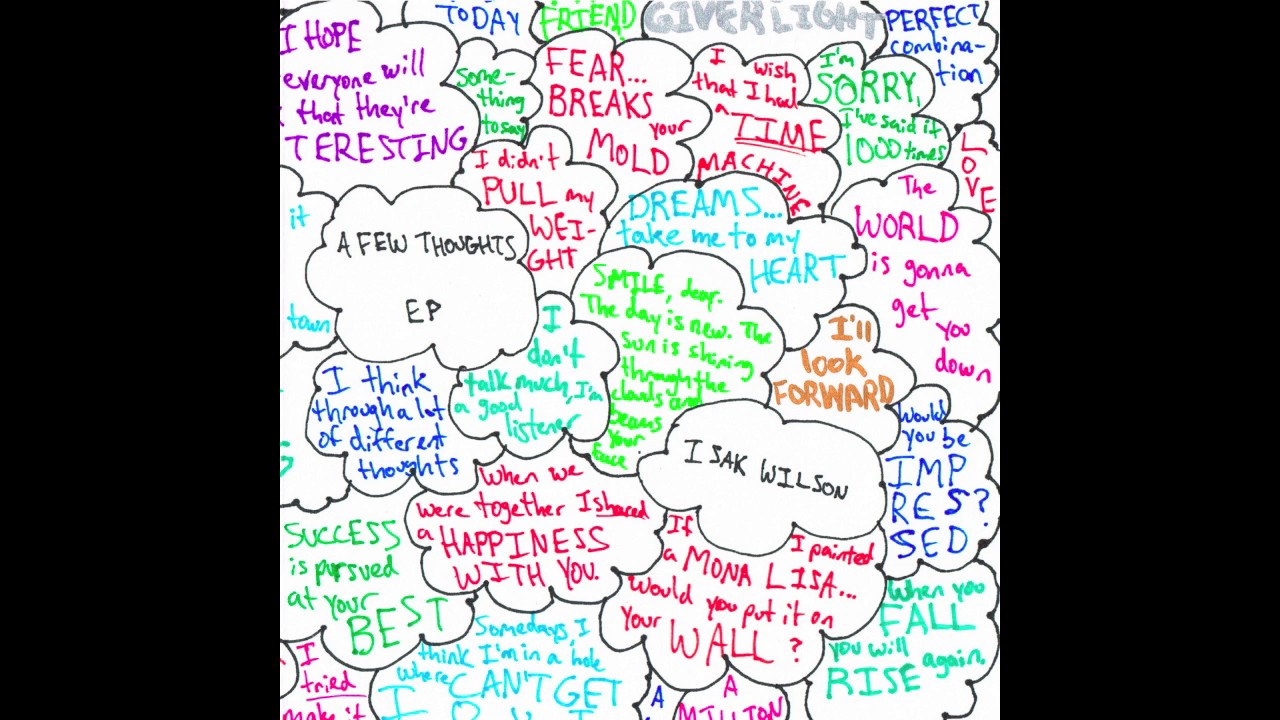 TODAY
FRIEND
GIVER LIGHT
PERFECT
combina-
tion
I HOPE
everyone will
that they're
TERESTING
some-
thing
to say
FEAR...
BREAKS
your
MOLD
I wish
that I had
a TIME
MACHINE
I'm
SORRY,
I've said it
1000 times
LOVE
it
town
A FEW THOUGHTS
EP
I didn't
PULL my
WEI-
GHT
DREAMS...
take me to my
HEART
The
WORLD
is gonna
get you
down
SMILE, dear.
The day is new. The
sun is shining
through the
clouds and
beams
your
face.
I
don't
talk much, I'm
a good
listener
I'll
look
FORWARD
I think
through a lot
of different
thoughts
I SAK WILSON
Would
you be
IMP
RES?
SED
When we
were together I shared
a HAPPINESS
WITH YOU.
SUCCESS
is pursued
at your
BEST
If I painted
a MONA LISA...
would you put it on
your WALL?
When you
FALL
you will
RISE again.
Somedays, I
think I'm in a hole
where CAN'T GET
I
I
tried
make it
A
A
MILLION